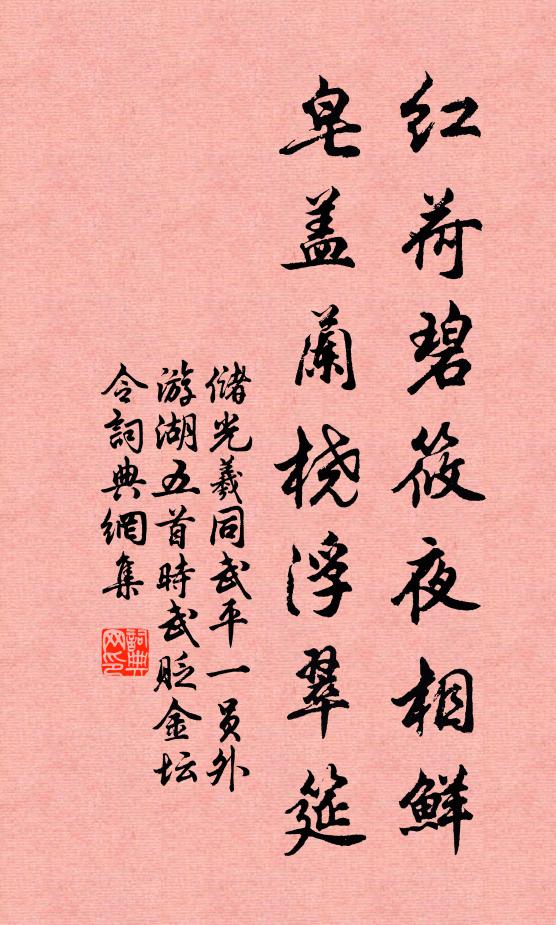 红荷碧筱夜相鮮
皂盖蘭桡浮翠筵
儲光羲同武平一员外
游湖五首時武贬金坛
令詞典網集
詞典網印